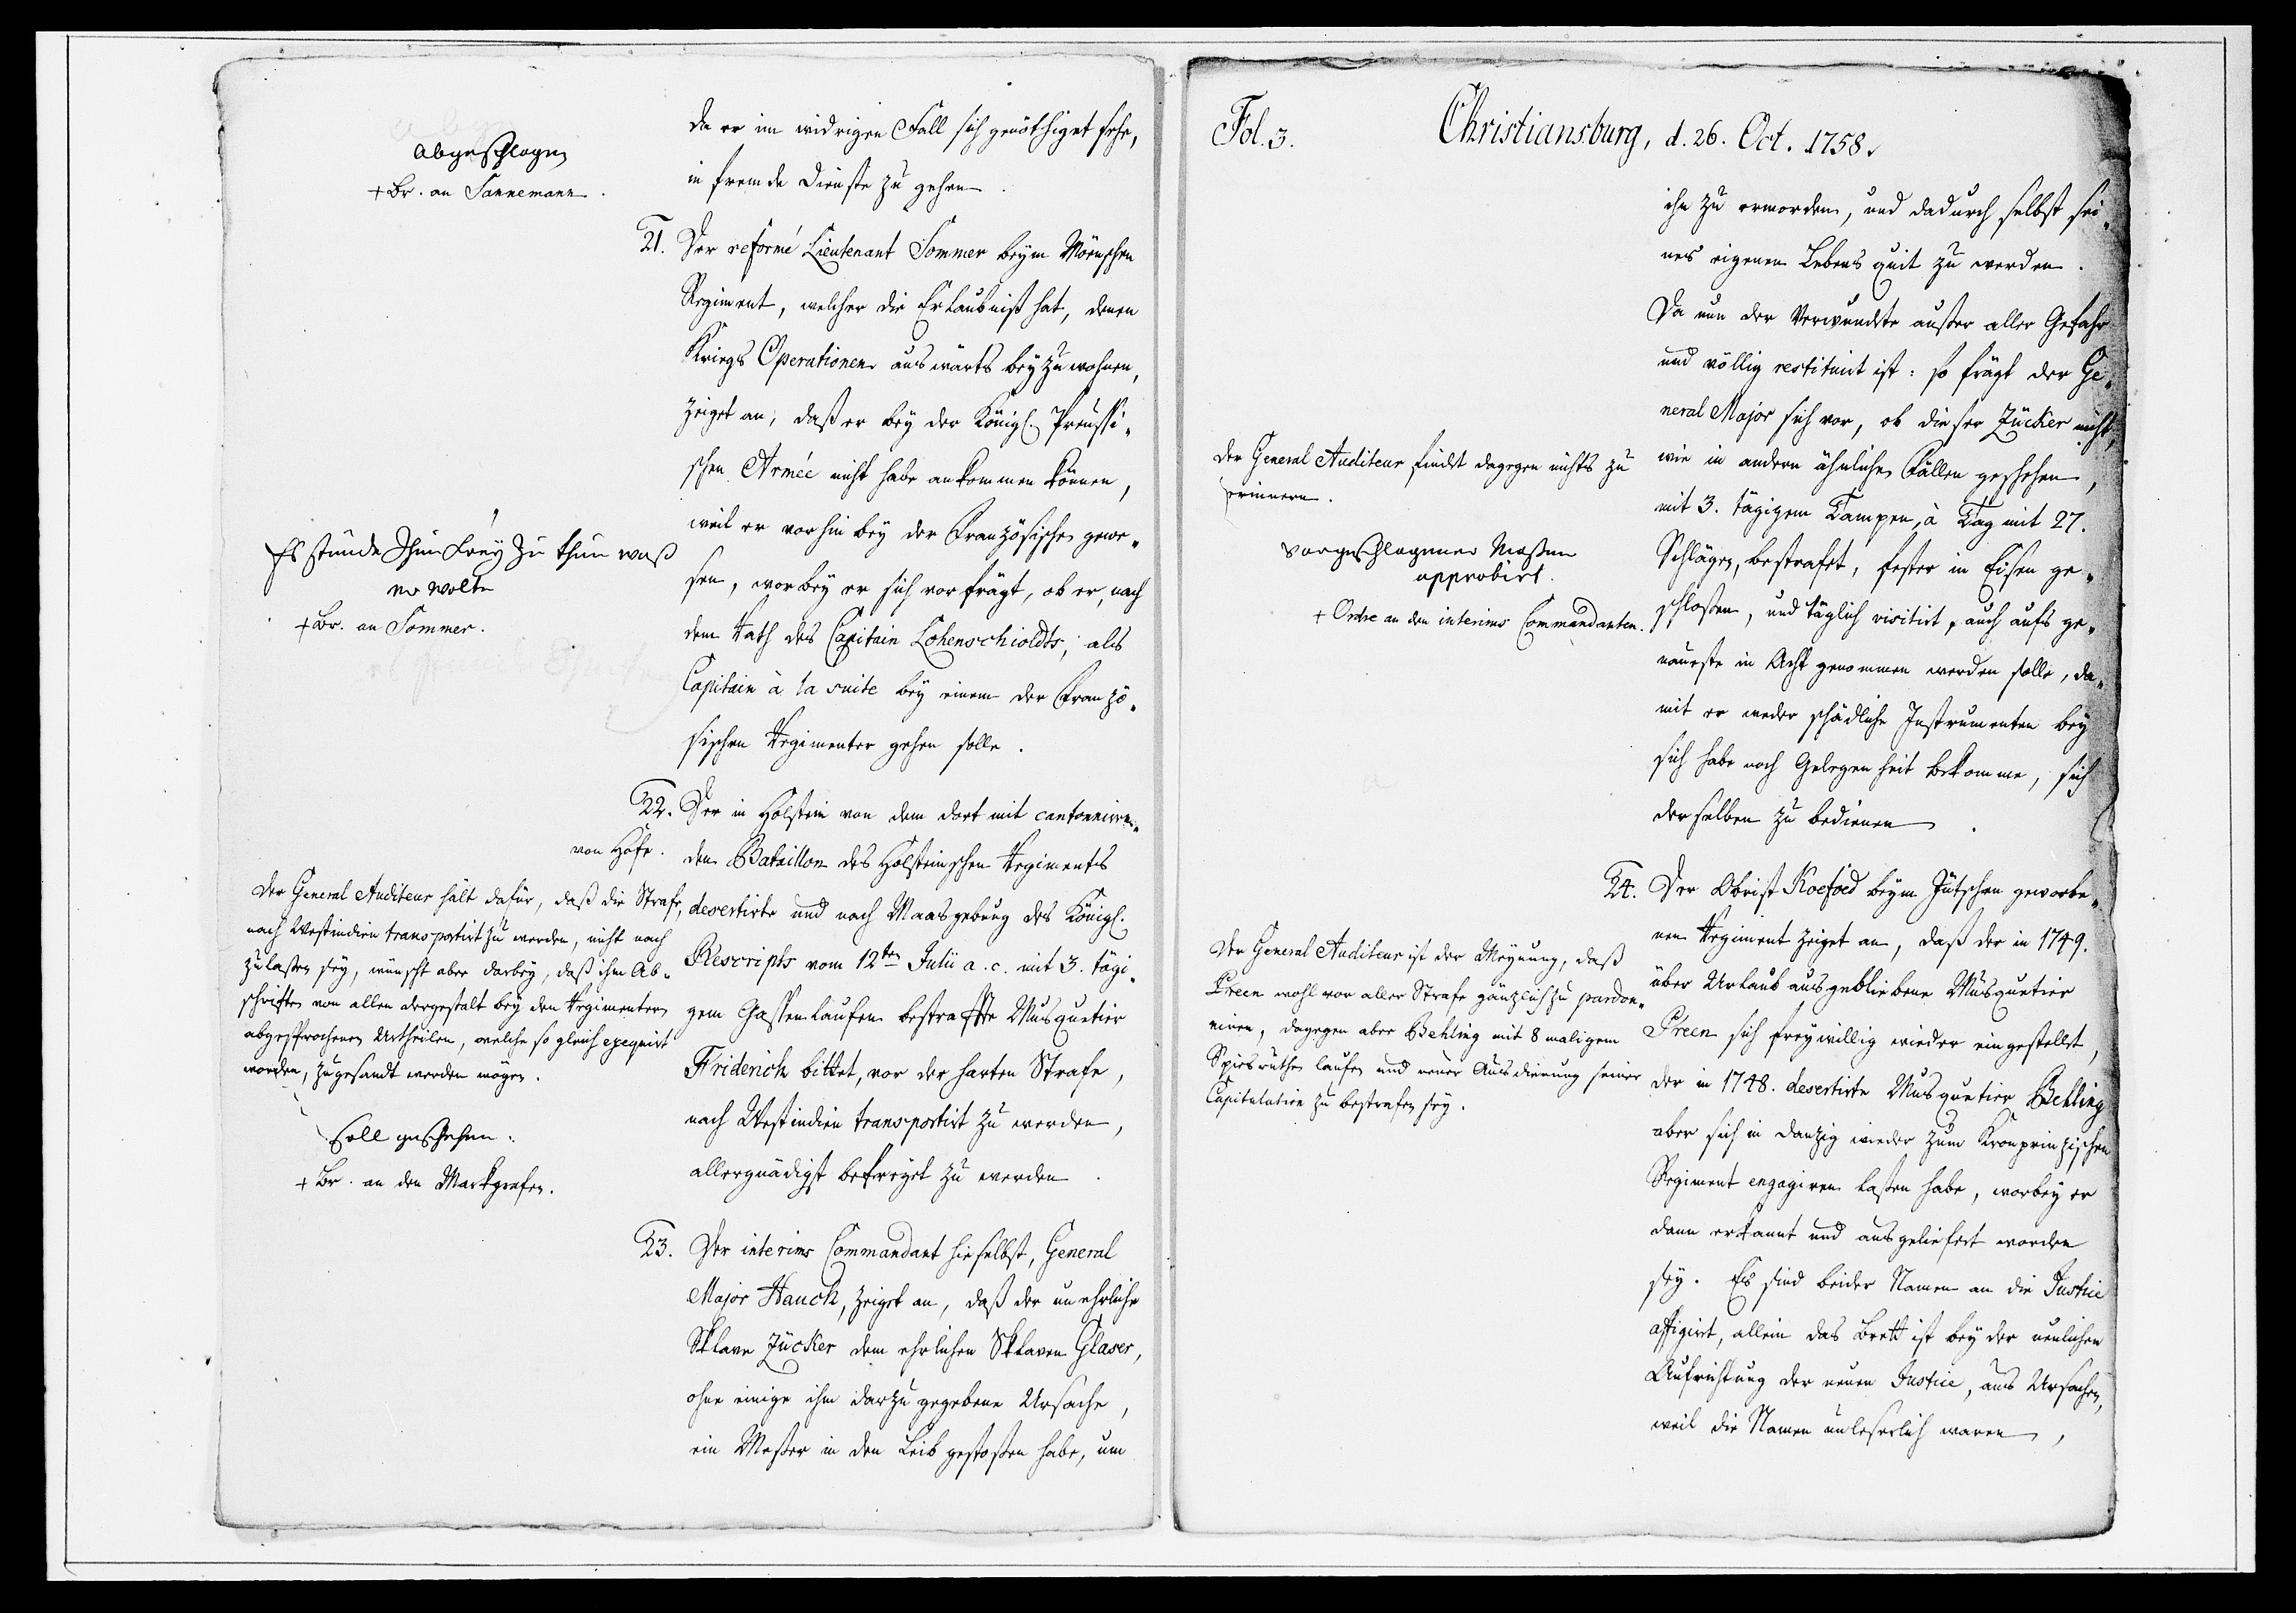 da er im widrigen Fall sich genöthiget sehe,
in fremde Dienste zu gehen.
abgeschlagen
+ Br. an Sannemann.
21. Der reformé Lieutenant Sommer beym Mörnschen
Regiment, welcher die Erlaubniß hat, denen
Kriegs Operationen auswärts beyzuwohnen,
zeiget an, daß er bey der Königl. Preussi-
schen Armée nicht habe ankommen können,
weil er vorhin bey der Französischen gewe-
sen, worbey er sich vorfrägt, ob er, nach
dem Rath des Capitain Lohenschioldts, als
Capitain à la suite bey einem der Franzö-
sischen Regimenter gehen solle.
Es stunde Ihm frey zu thun waß
er wolte
+ Br. an Sommer.
22. Der in Holstein von dem dort mit cantonniren-
den Bataillon des Holsteinschen Regiments
desertirte und nach Maasgebung des Königl.
Rescripts vom 12ten Julii a. c. mit 3. tägi-
gem Gassenlaufen bestrafte Musquetier
Friderich bittet, vor der harten Strafe,
nach Westindien transportirt zu werden,
allergnädigst befreyet zu werden.
von Höfe.
Der General Auditeur hält dafür, daß die Strafe,
nach Westindien transportirt zu werden, nicht nach
zulassen sey, wünscht aber darbey, daß ihm Ab-
schriften von allen dergestalt bey den Regimentern
abgesprochenen Urtheilen, welche so gleich exequirt
worden, zugesandt werden mögen.
soll geschehen.
+ Br. an den Markgrafen.
23. Der interims Commandant hieselbst, General
Major Hauch, zeiget an, daß der unehrliche
Sklave Zücker dem ehrlichen Sklaven Glaser,
ohne einige ihm darzu gegebene Ursache,
ein Messer in den Leib gestoßen habe, um
Fol. 3.
Christiansburg, d. 26. Oct. 1758.
ihn zu ermorden, und dadurch selbst sei-
nes eigenen Lebens quit zu werden.
Da nun der Verwundete außer aller Gefahr
und völlig restituirt ist: so frägt der Ge-
neral Major sich vor, ob dieser Zücker nicht,
wie in andern ähnlichen Fällen geschehen,
mit 3. tägigem Tampen, à Tag mit 27.
Schlägen, bestrafet, fester in Eisen ge-
schlossen, und täglich visitirt, auch aufs ge-
naueste in Acht genommen werden solle, da-
mit er weder schädliche Instrumenten bey
sich habe noch Gelegenheit bekomme, sich
derselben zu bedienen.
Der General Auditeur findet dagegen nichts zu
erinnern.
vorgeschlagener Maßen
approbirt.
+ Ordre an den interims Commandanten.
24. Der Obrist Koefoed beym Jütschen geworbe-
nen Regiment zeiget an, daß der in 1749.
über Urlaub ausgebliebene Musquetier
Preen sich freywillig wieder eingestellet,
der in 1748. desertirte Musquetier Behling
aber sich in Danzig wieder zum Kronprinzischen
Regiment engagiren lassen habe, worbey er
dann erkannt und ausgeliefert worden
sey. Es sind beider Namen an die Justice
affigirt, allein das Brett ist bey der neulichen
Aufrichtung der neuen Justice, aus Ursachen,
weil die Namen unleserlich waren,
Der General Auditeur ist der Meynung, daß
Preen wohl vor aller Strafe gänzlich zu pardon-
niren, dagegen aber Behling mit 8 maligem
Spiesruthen laufen und neuer Ausdienung seiner
Capitulation zu bestrafen sey.